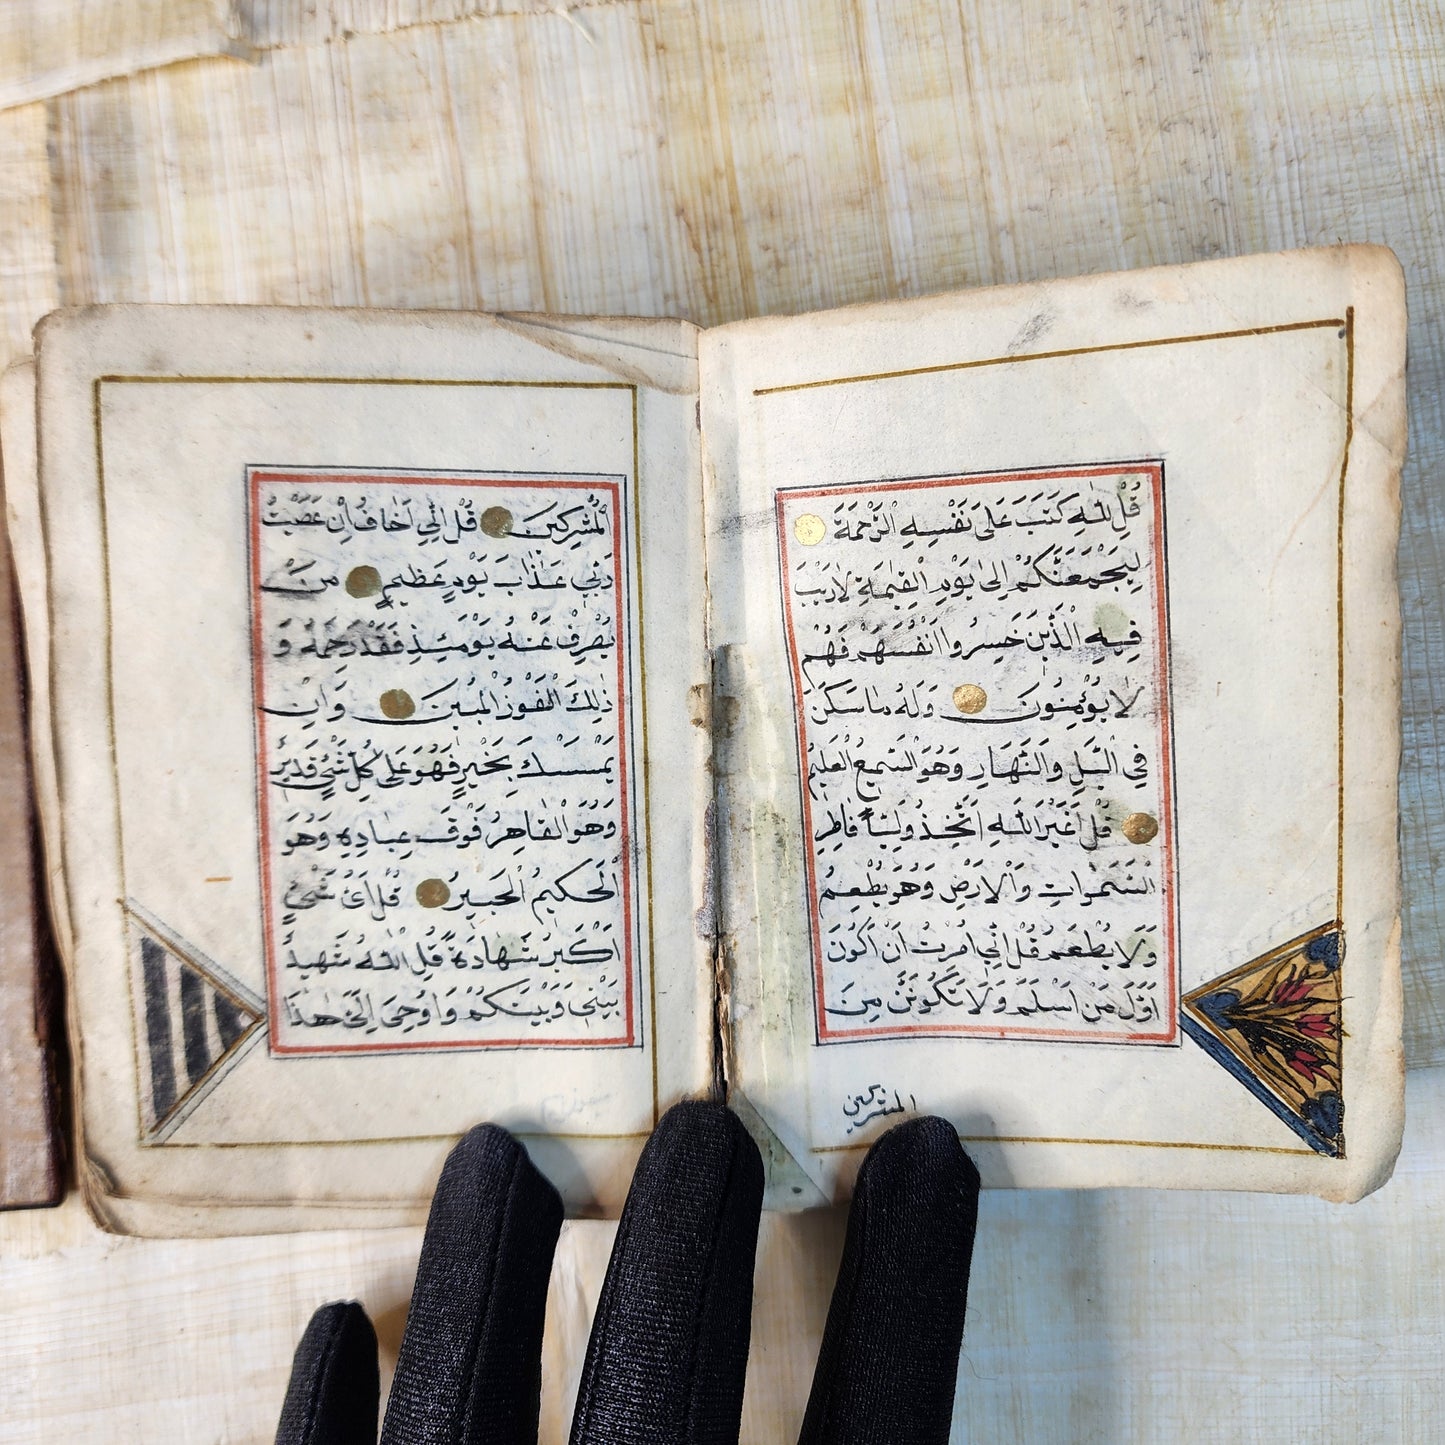 قُلْ لِلّٰهِ كَتَبَ عَلٰى نَفْسِهِ الْرَّحْمَةَ
لِيَجْمَعَنَّكُمْ اِلٰى يَوْمِ الْقِيٰمَةِ لَارَيْبَ
فِيهِ الْذَّيِنَ خَسِرُوا اَنْفُسَهُمْ فَهُمْ
لَا يُؤْمِنُونَ وَلَهُ مَا سَكَنَ
فِي الْلَّيْلِ وَالْنَّهَارِ وَهُوَ الْسَّمِيعُ الْعَلِيمُ
قُلْ اَغَيْرَ اللّٰهِ اَتَّخِذُ وَلِيًّا فَاطِرِ
الْسَّمٰوَاتِ وَالْاَرْضِ وَهُوَ يُطْعِمُ
وَلَا يُطْعَمُ قُلْ اِنِّي اُمِرْتُ اَنْ اَكُونَ
اَوَّلَ مَنْ اَسْلَمَ وَلَا تَكُونَنَّ مِنَ
المشركين
الْمُشْرِكِينَ قُلْ اِنِّي اَخَافُ اِنْ عَصَيْتُ
رَبِّي عَذَابَ يَوْمٍ عَظِيمٍ مَنْ
يُصْرِفْ عَنْهُ يَوْمَئِذٍ فَقَدْ رَحِمَهُ وَ
ذٰلِكَ الْفَوْزُ الْمُبِينُ وَاِنْ
يَمْسَسْكَ بِخَيْرٍ فَهُوَ عَلٰى كُلِّ شَيْءٍ قَدِيرٌ
وَهُوَ الْقَاهِرُ فَوْقَ عِبَادِهِ وَهُوَ
الْحَكِيمُ الْخَبِيرُ قُلْ اَيُّ شَيْءٍ
اَكْبَرُ شَهَادَةً قُلِ اللّٰهُ شَهِيدٌ
بَيْنِي وَبَيْنَكُمْ وَاُوحِيَ اِلَيَّ هٰذَا